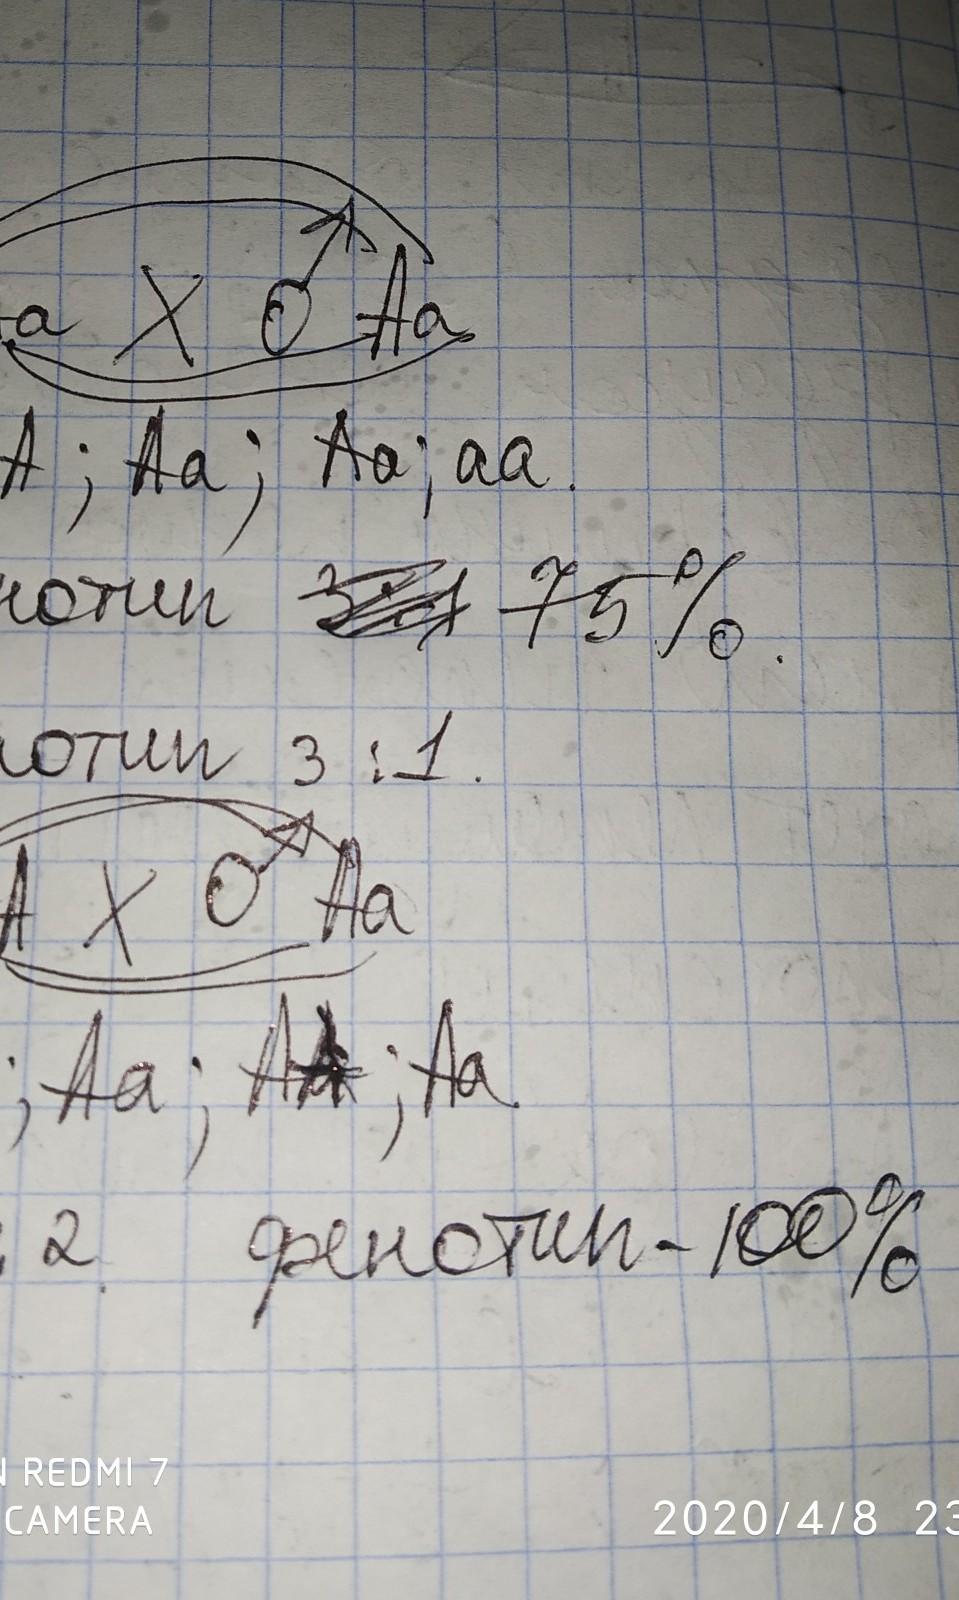 a X ♂ Aa
A; Aa; Aa; aa.
нотип 75%.
нотип 3:1.
A X ♂ Aa
; Aa; AA; Aa.
: 2. фенотип - 100%
N REDMI 7
CAMERA
2020/4/8 23